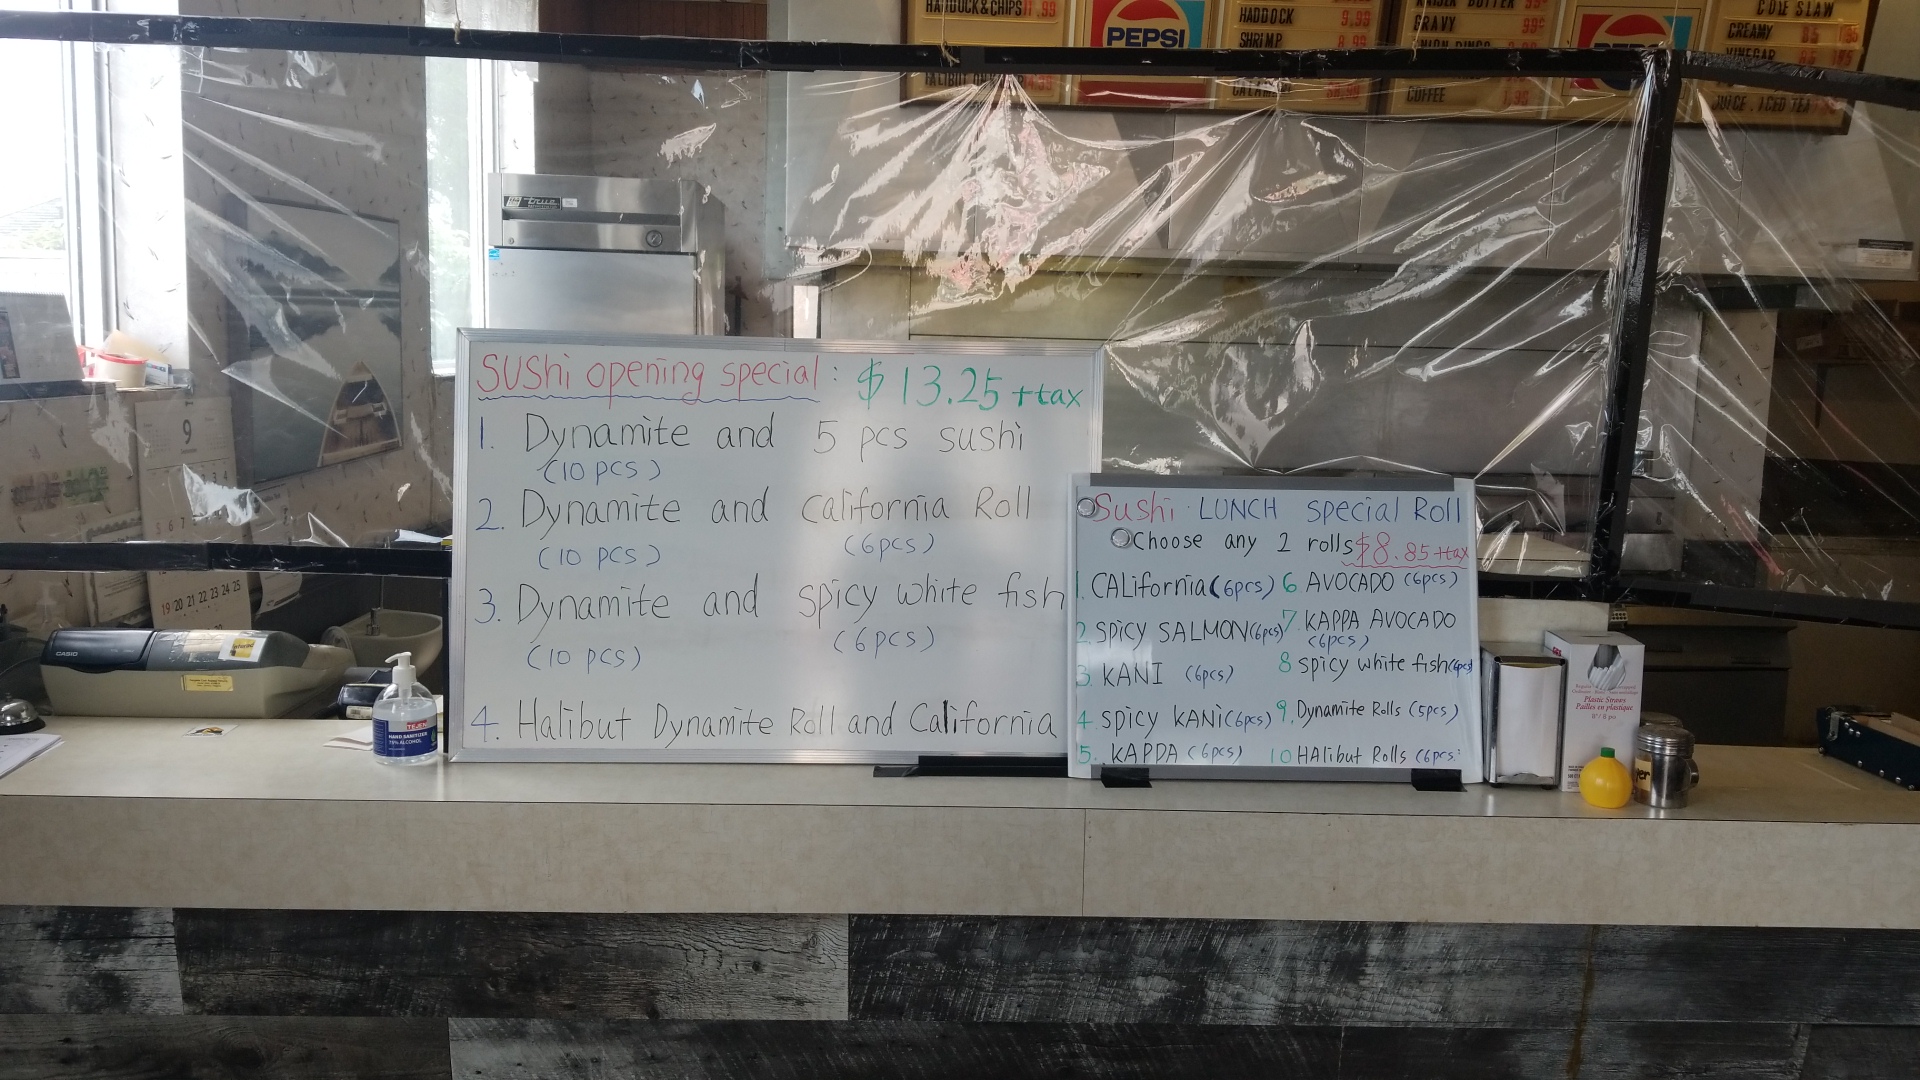 HADDOCK & CHIPS 11.99
PEPSI
HADDOCK 9.99
SHRIMP 8.99
GRAVY 99¢
COFFEE 1.95
COLE SLAW
CREAMY
VINEGAR
JUICE, ICED TEA
true
9
19 20 21 22 23 24 25
CASIO
TEJEN
HAND SANITIZER
70% ALCOHOL
SUShi opening special: $13.25 +tax
1. Dynamite and 5 pcs sushi
(10 pcs)
2. Dynamite and california Roll
(10 pcs) (6pcs)
3. Dynamite and spicy white fish
(10 pcs) (6pcs)
4. Halibut Dynamite Roll and California
Sushi LUNCH special Roll
Choose any 2 rolls $8.85 +tax
1. CALifornia (6pcs) 6 AVOCADO (6pcs)
2 SPICY SALMON (6pcs) 7. KAPPA AVOCADO
(6pcs)
3. KANI (6pcs) 8 spicy white fish (6pcs)
4 SPICY KANi (6pcs) 9. Dynamite Rolls (5pcs)
5. KAPPA (6pcs) 10 HALibut Rolls (6pcs.
Plastic Straws
Pailles en plastique